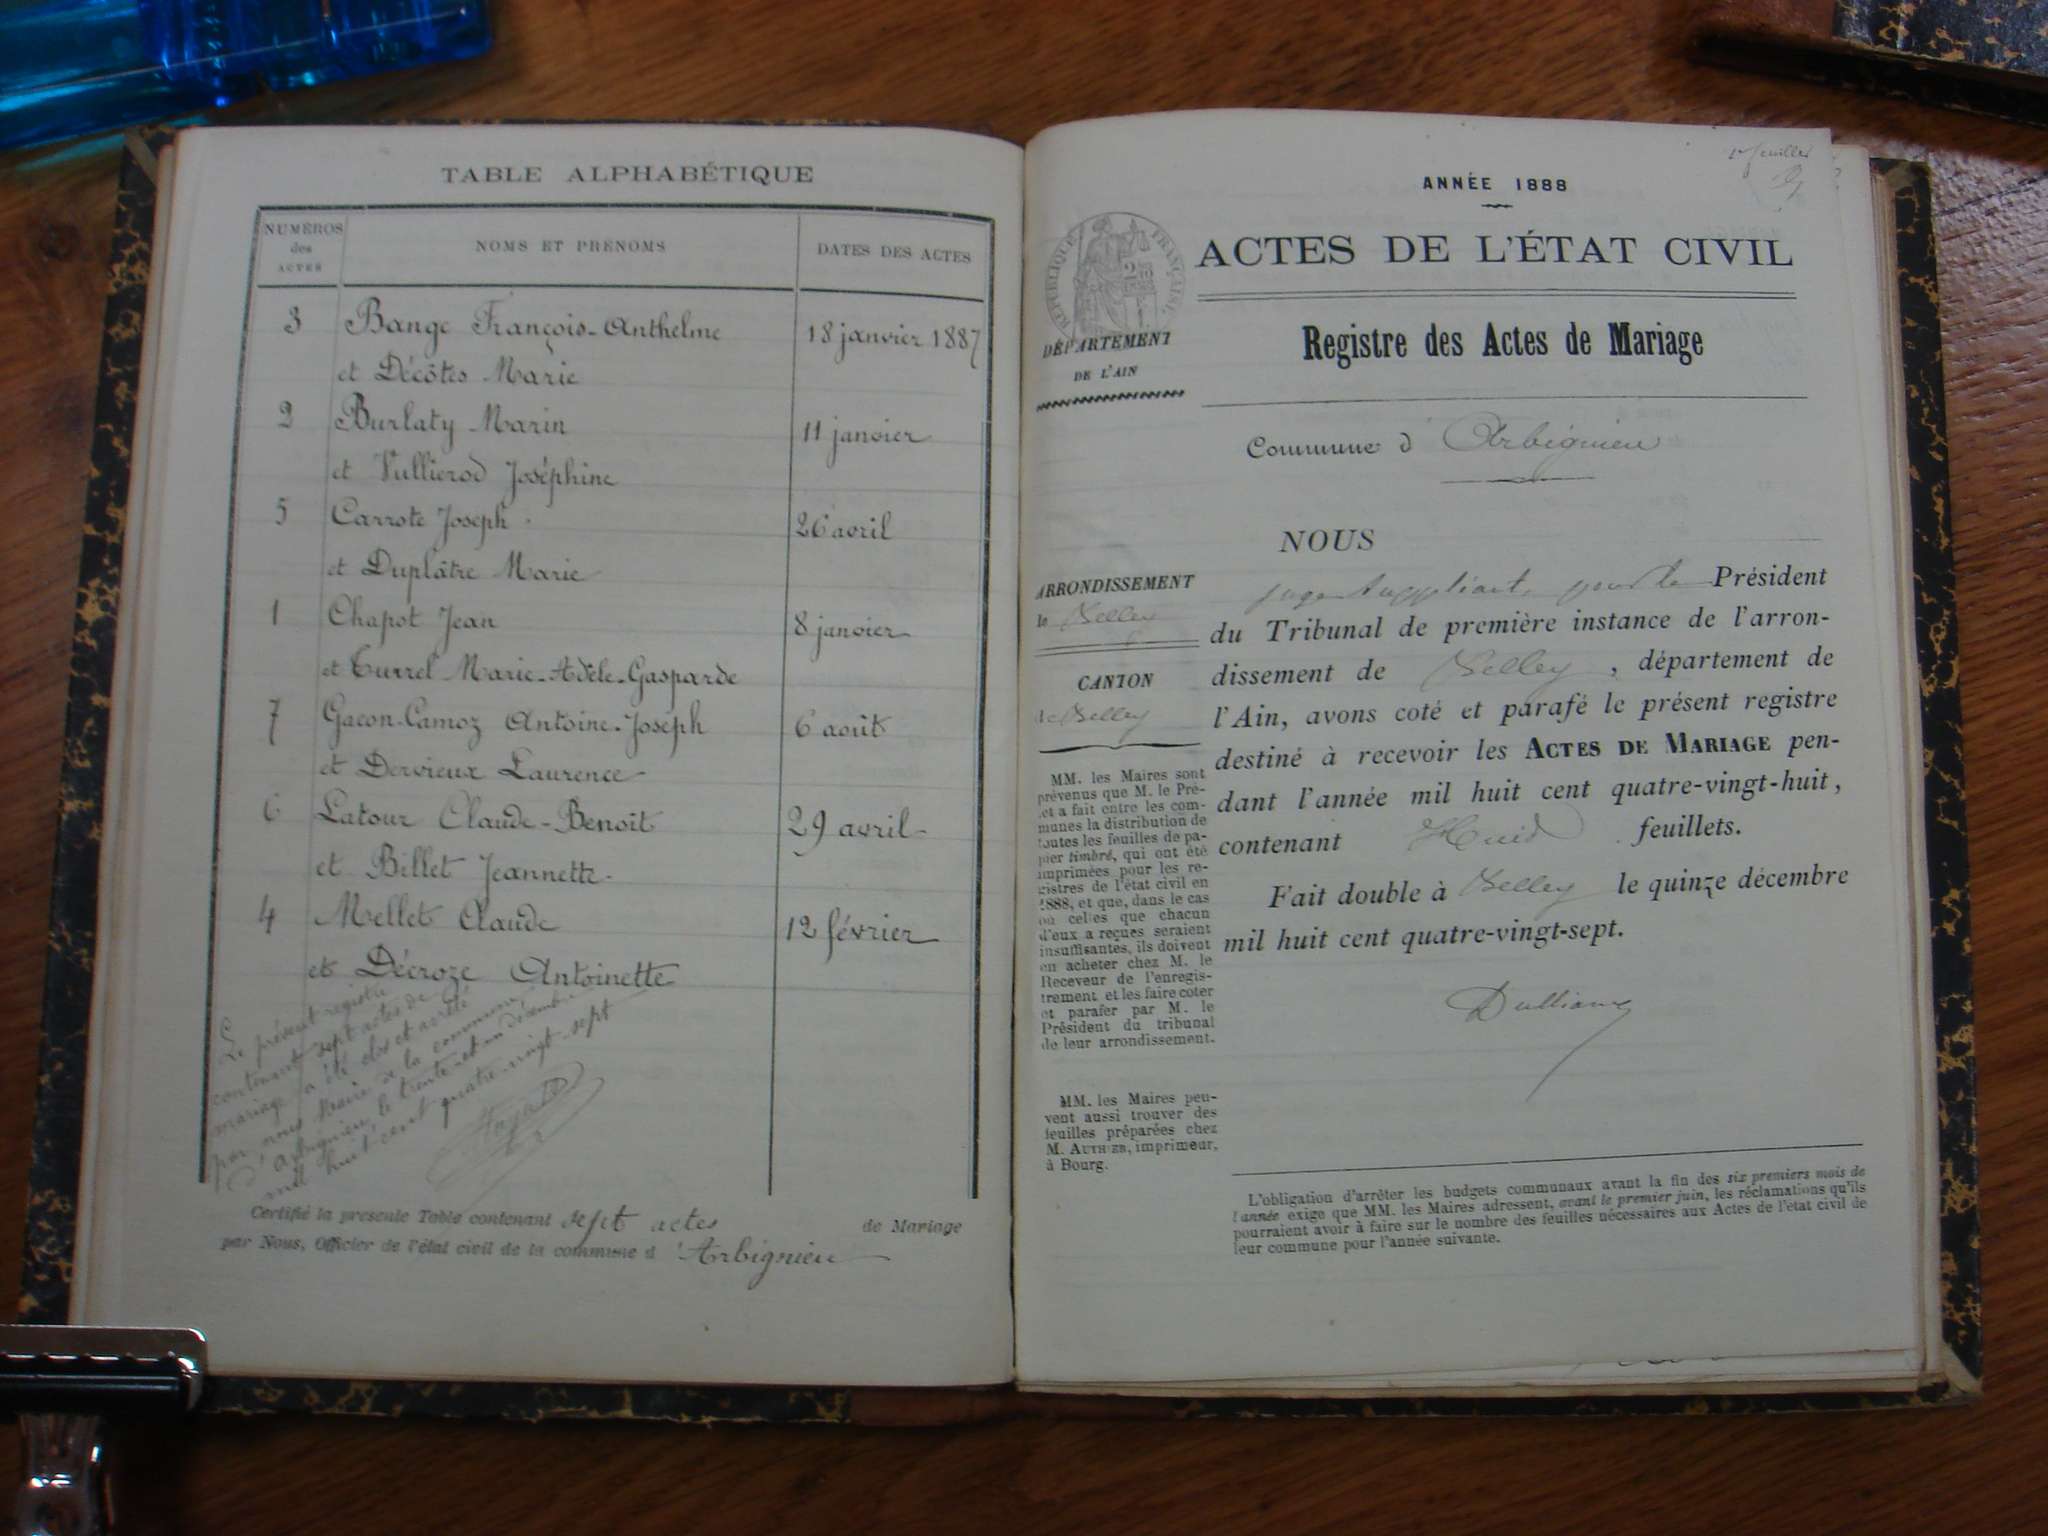 TABLE ALPHABÉTIQUE
NUMÉROS des ACTES NOMS ET PRÉNOMS DATES DES ACTES
3 Bange François-Anthelme 18 janvier 1887
et Décôtes Marie
2 Burlaty Marin 11 janvier
et Vullierod Joséphine
5 Carrote Joseph 26 avril
et Duplâtre Marie
1 Chapot Jean 8 janvier
et Turrel Marie-Adèle-Gasparde
7 Gacon-Camoz Antoine-Joseph 6 août
et Dervieux Laurence
6 Latour Claude-Benoît 29 avril
et Billet Jeannette
4 Mellet Claude 12 février
et Décroze Antoinette
Le présent registre
contenant sept actes de
mariage a été clos et arrêté
par nous Maire de la commune
d'Arbignieu, le trente-et-un décembre
mil huit cent quatre-vingt-sept
Certifié la présente Table contenant sept actes de Mariage
par Nous, Officier de l'état civil de la commune d'Arbignieu
1er feuillet
ANNÉE 1888
RÉPUBLIQUE FRANÇAISE
ACTES DE L'ÉTAT CIVIL
DÉPARTEMENT
DE L'AIN
Registre des Actes de Mariage
Commune d'Arbignieu
ARRONDISSEMENT
de Belley
CANTON
de Belley
MM. les Maires sont
prévenus que M. le Pré-
fet a fait entre les com-
munes la distribution de
toutes les feuilles de pa-
pier timbré, qui ont été
imprimées pour les re-
gistres de l'état civil en
1888, et que, dans le cas
où celles que chacun
d'eux a reçues seraient
insuffisantes, ils doivent
en acheter chez M. le
Receveur de l'enregis-
trement et les faire coter
et parafer par M. le
Président du tribunal
de leur arrondissement.
MM. les Maires peu-
vent aussi trouver des
feuilles préparées chez
M. AUTHIER, imprimeur,
à Bourg.
NOUS
juge suppléant, pour le Président
du Tribunal de première instance de l'arron-
dissement de Belley, département de
l'Ain, avons coté et parafé le présent registre
destiné à recevoir les ACTES DE MARIAGE pen-
dant l'année mil huit cent quatre-vingt-huit,
contenant Huit feuillets.
Fait double à Belley le quinze décembre
mil huit cent quatre-vingt-sept.
L'obligation d'arrêter les budgets communaux avant la fin des six premiers mois de
l'année exige que MM. les Maires adressent, avant le premier juin, les réclamations qu'ils
pourraient avoir à faire sur le nombre des feuilles nécessaires aux Actes de l'état civil de
leur commune pour l'année suivante.